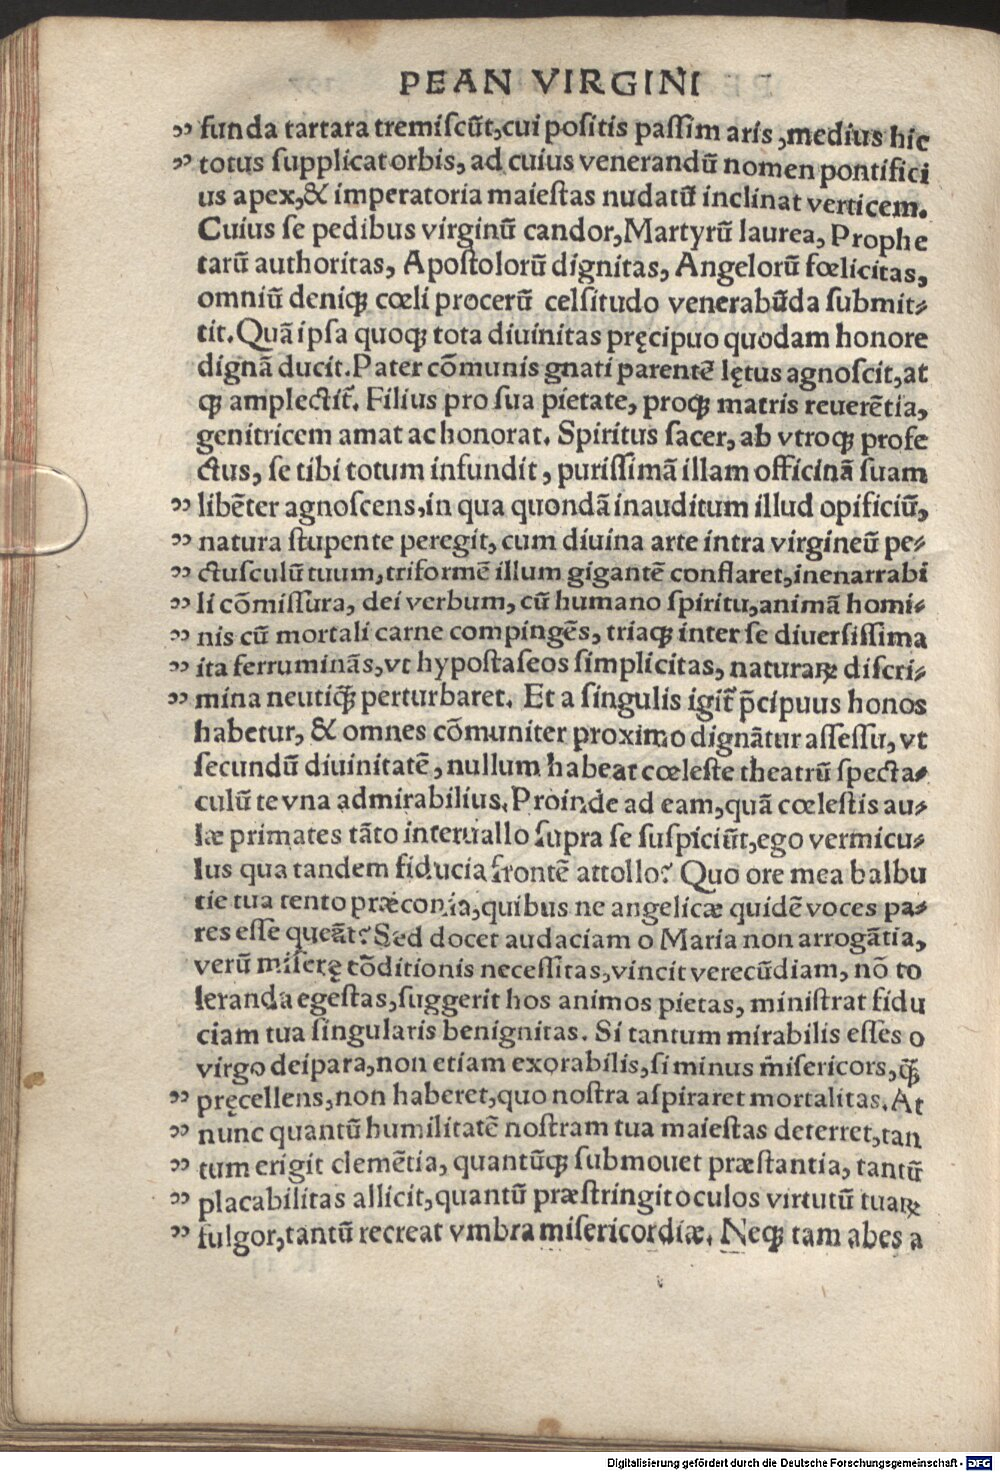 PEAN VIRGINI
„ funda tartara tremiſcūt,cui poſitis paſſim aris ,medius hic
„ totus ſupplicat orbis, ad cuius venerandū nomen pontifici
us apex,& imperatoria maieſtas nudatū inclinat verticem.
Cuius ſe pedibus virginū candor,Martyrū laurea, Prophe
tarū authoritas, Apoſtolorū dignitas, Angelorū fœlicitas,
omniū deniqꝫ cœli procerū celſitudo venerabūda ſubmit⸗
tit.Quā ipſa quoqꝫ tota diuinitas pręcipuo quodam honore
dignā ducit.Pater cōmunis gnati parentē lętus agnoſcit,at
qꝫ amplectit᷑. Filius pro ſua pietate, proqꝫ matris reuerētia,
genitricem amat ac honorat. Spiritus ſacer, ab vtroqꝫ profe
ctus, ſe tibi totum infundit, puriſſimā illam officinā ſuam
„ libēter agnoſcens,in qua quondā inauditum illud opificiū,
„ natura ſtupente peregit, cum diuina arte intra virgineū pe⸗
„ ctusculū tuum,triformē illum gigantē conflaret,inenarrabi
„ li cōmiſſura, dei verbum, cū humano ſpiritu,animā homi⸗
„ nis cū mortali carne compingēs, triaqꝫ inter ſe diuerſiſſima
„ ita ferruminās,vt hypoſtaſeos ſimplicitas, naturaꝝ diſcri⸗
„ mina neutiqꝫ̄ perturbaret. Et a ſingulis igit᷑ p̄cipuus honos
habetur, & omnes cōmuniter proximo dignātur aſſeſſu, vt
ſecundū diuinitatē, nullum habeat cœleſte theatrū ſpecta⸗
culū te vna admirabilius.Proinde ad eam,quā cœleſtis au⸗
læ primates tāto interuallo ſupra ſe ſuſpiciūt,ego vermicu⸗
lus qua tandem fiducia frontē attollo? Quo ore mea balbu
tie tua tento præconia,quibus ne angelicæ quidē voces pa⸗
res eſſe queāt? Sed docet audaciam o Maria non arrogātia,
verū miſerę cōditionis neceſſitas,vincit verecūdiam, nō to
leranda egeſtas,ſuggerit hos animos pietas, miniſtrat fidu
ciam tua ſingularis benignitas. Si tantum mirabilis eſſes o
virgo deipara,non etiam exorabilis,ſi minus miſericors,qꝫ̄
„ pręcellens,non haberet,quo noſtra aſpiraret mortalitas.At
„ nunc quantū humilitatē noſtram tua maieſtas deterret,tan
„ tum erigit clemētia, quantūqꝫ ſubmouet præſtantia, tantū
„ placabilitas allicit,quantū præſtringit oculos virtutū tuaꝝ
„ fulgor,tantū recreat vmbra miſericordiæ. Neqꝫ tam abes a
Digitalisierung gefördert durch die Deutsche Forschungsgemeinschaft - DFG